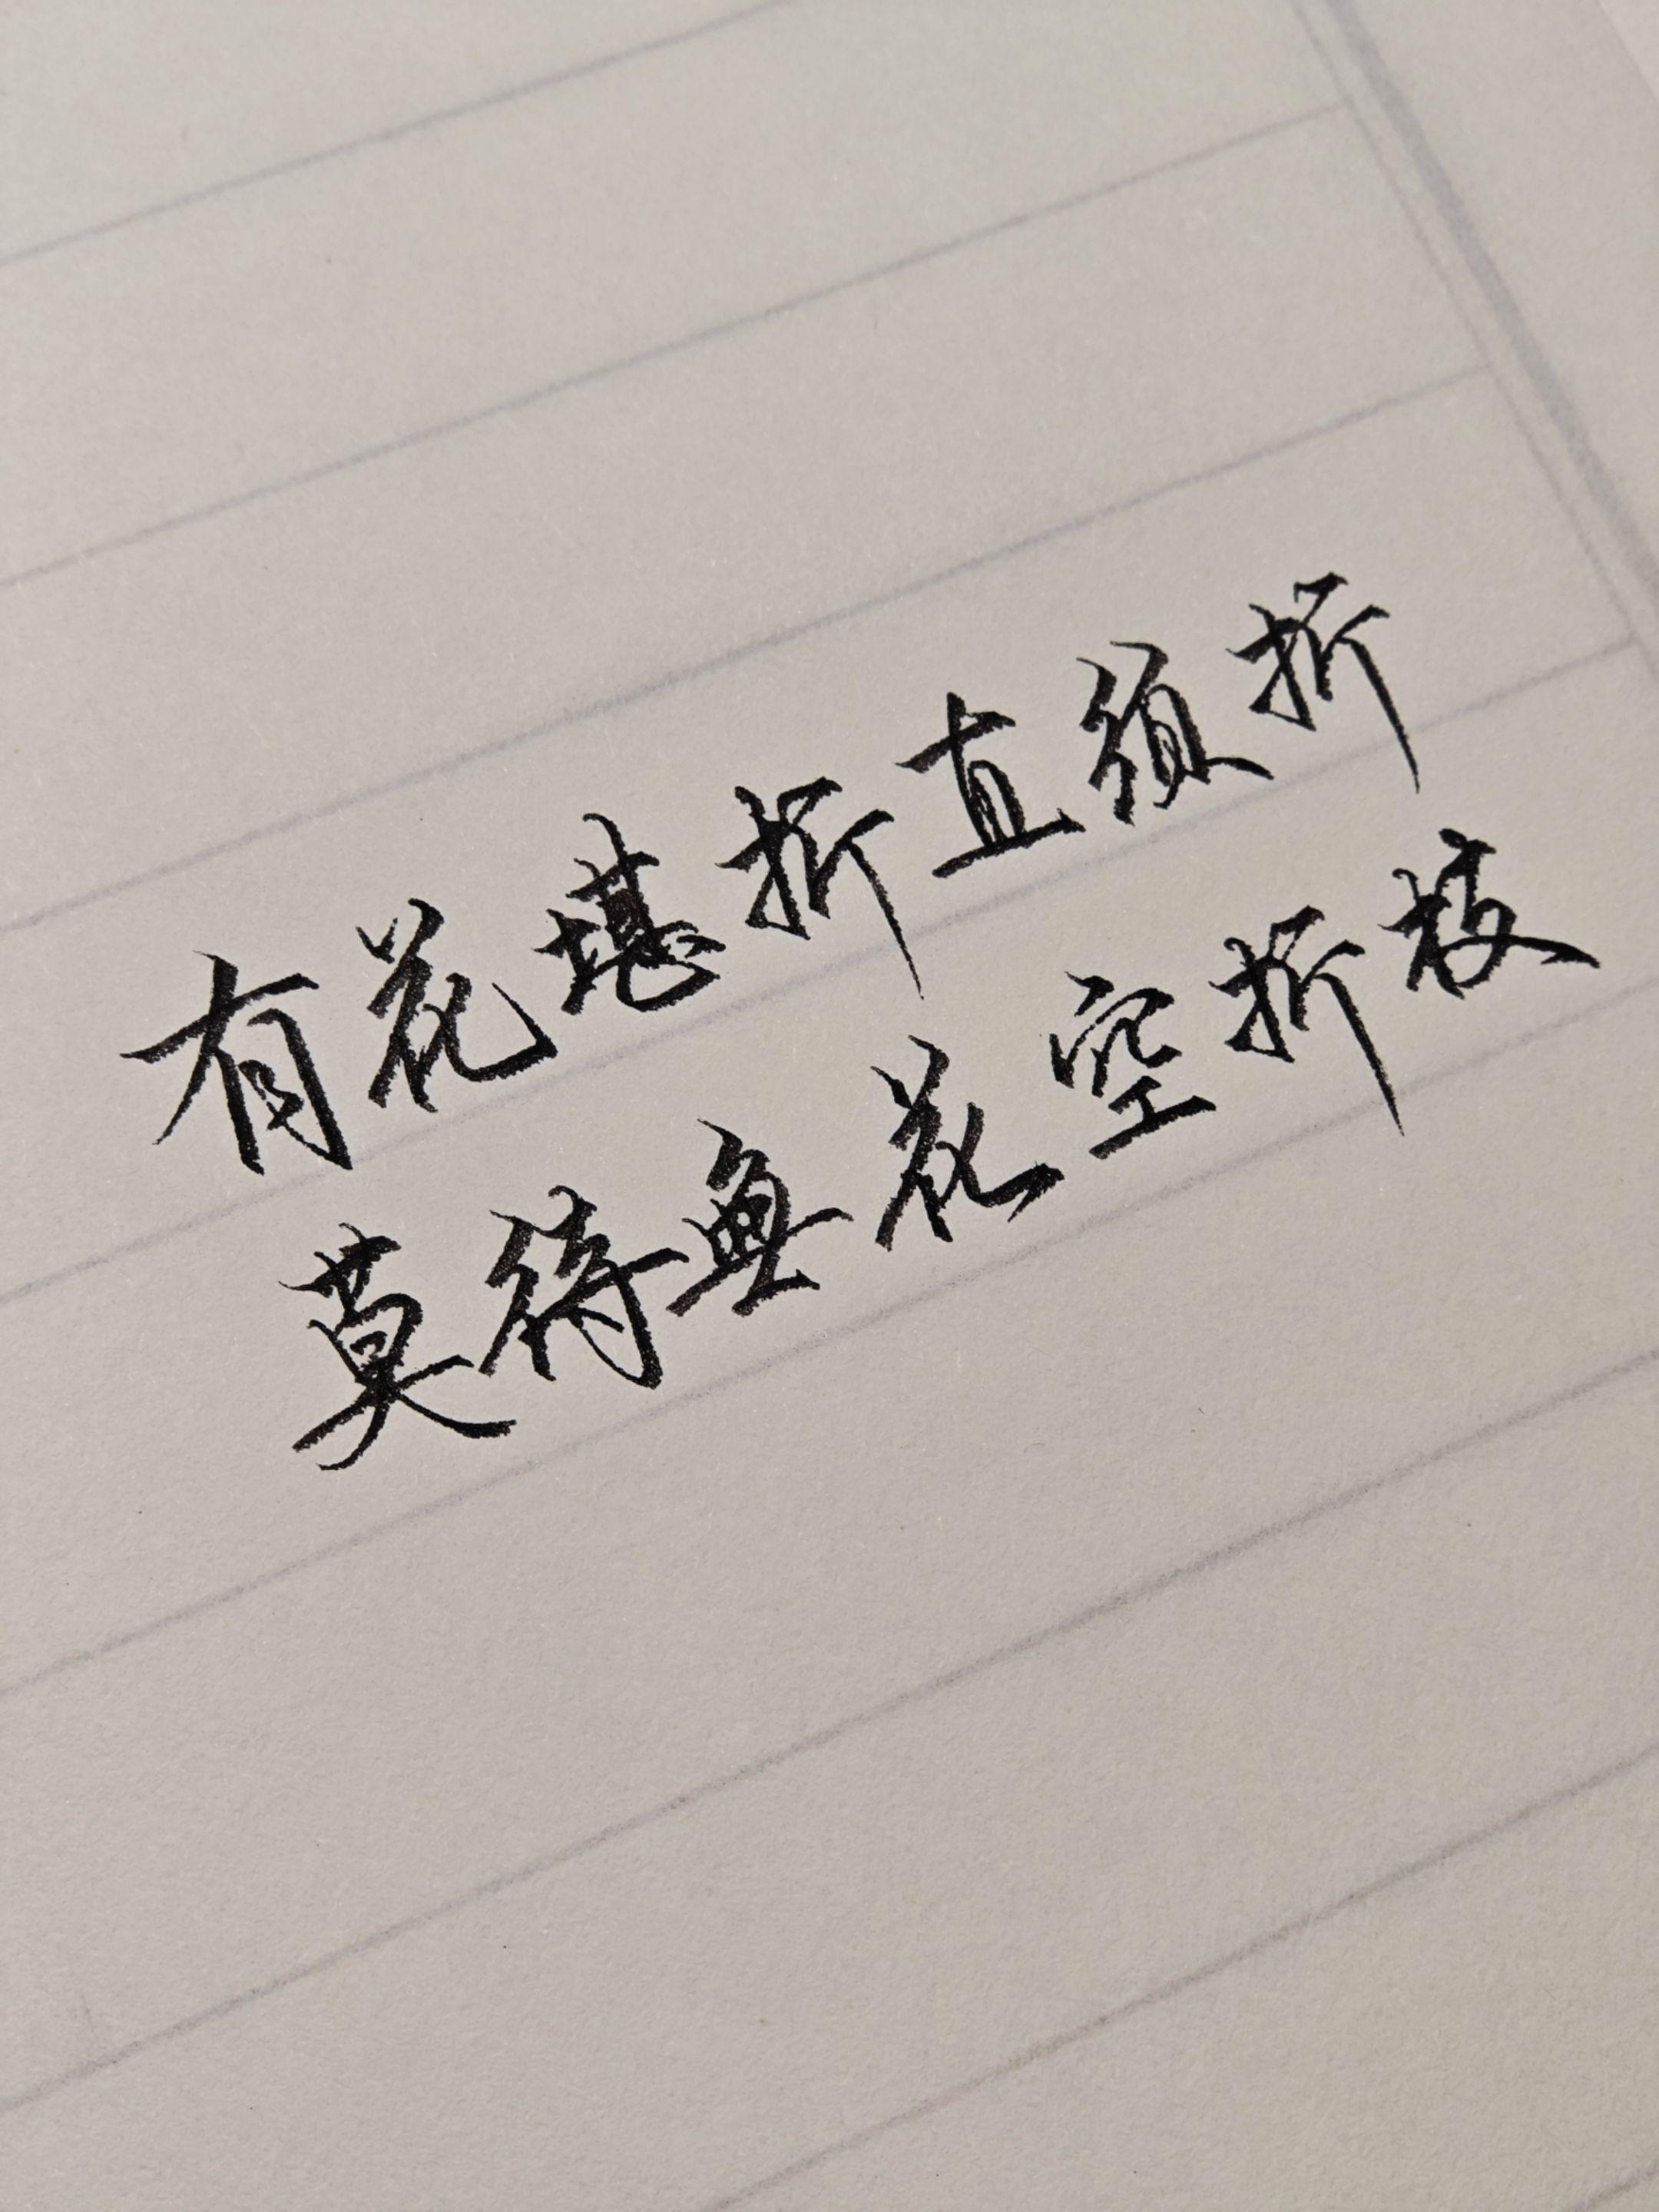 有花堪折直须折
莫待無花空折枝